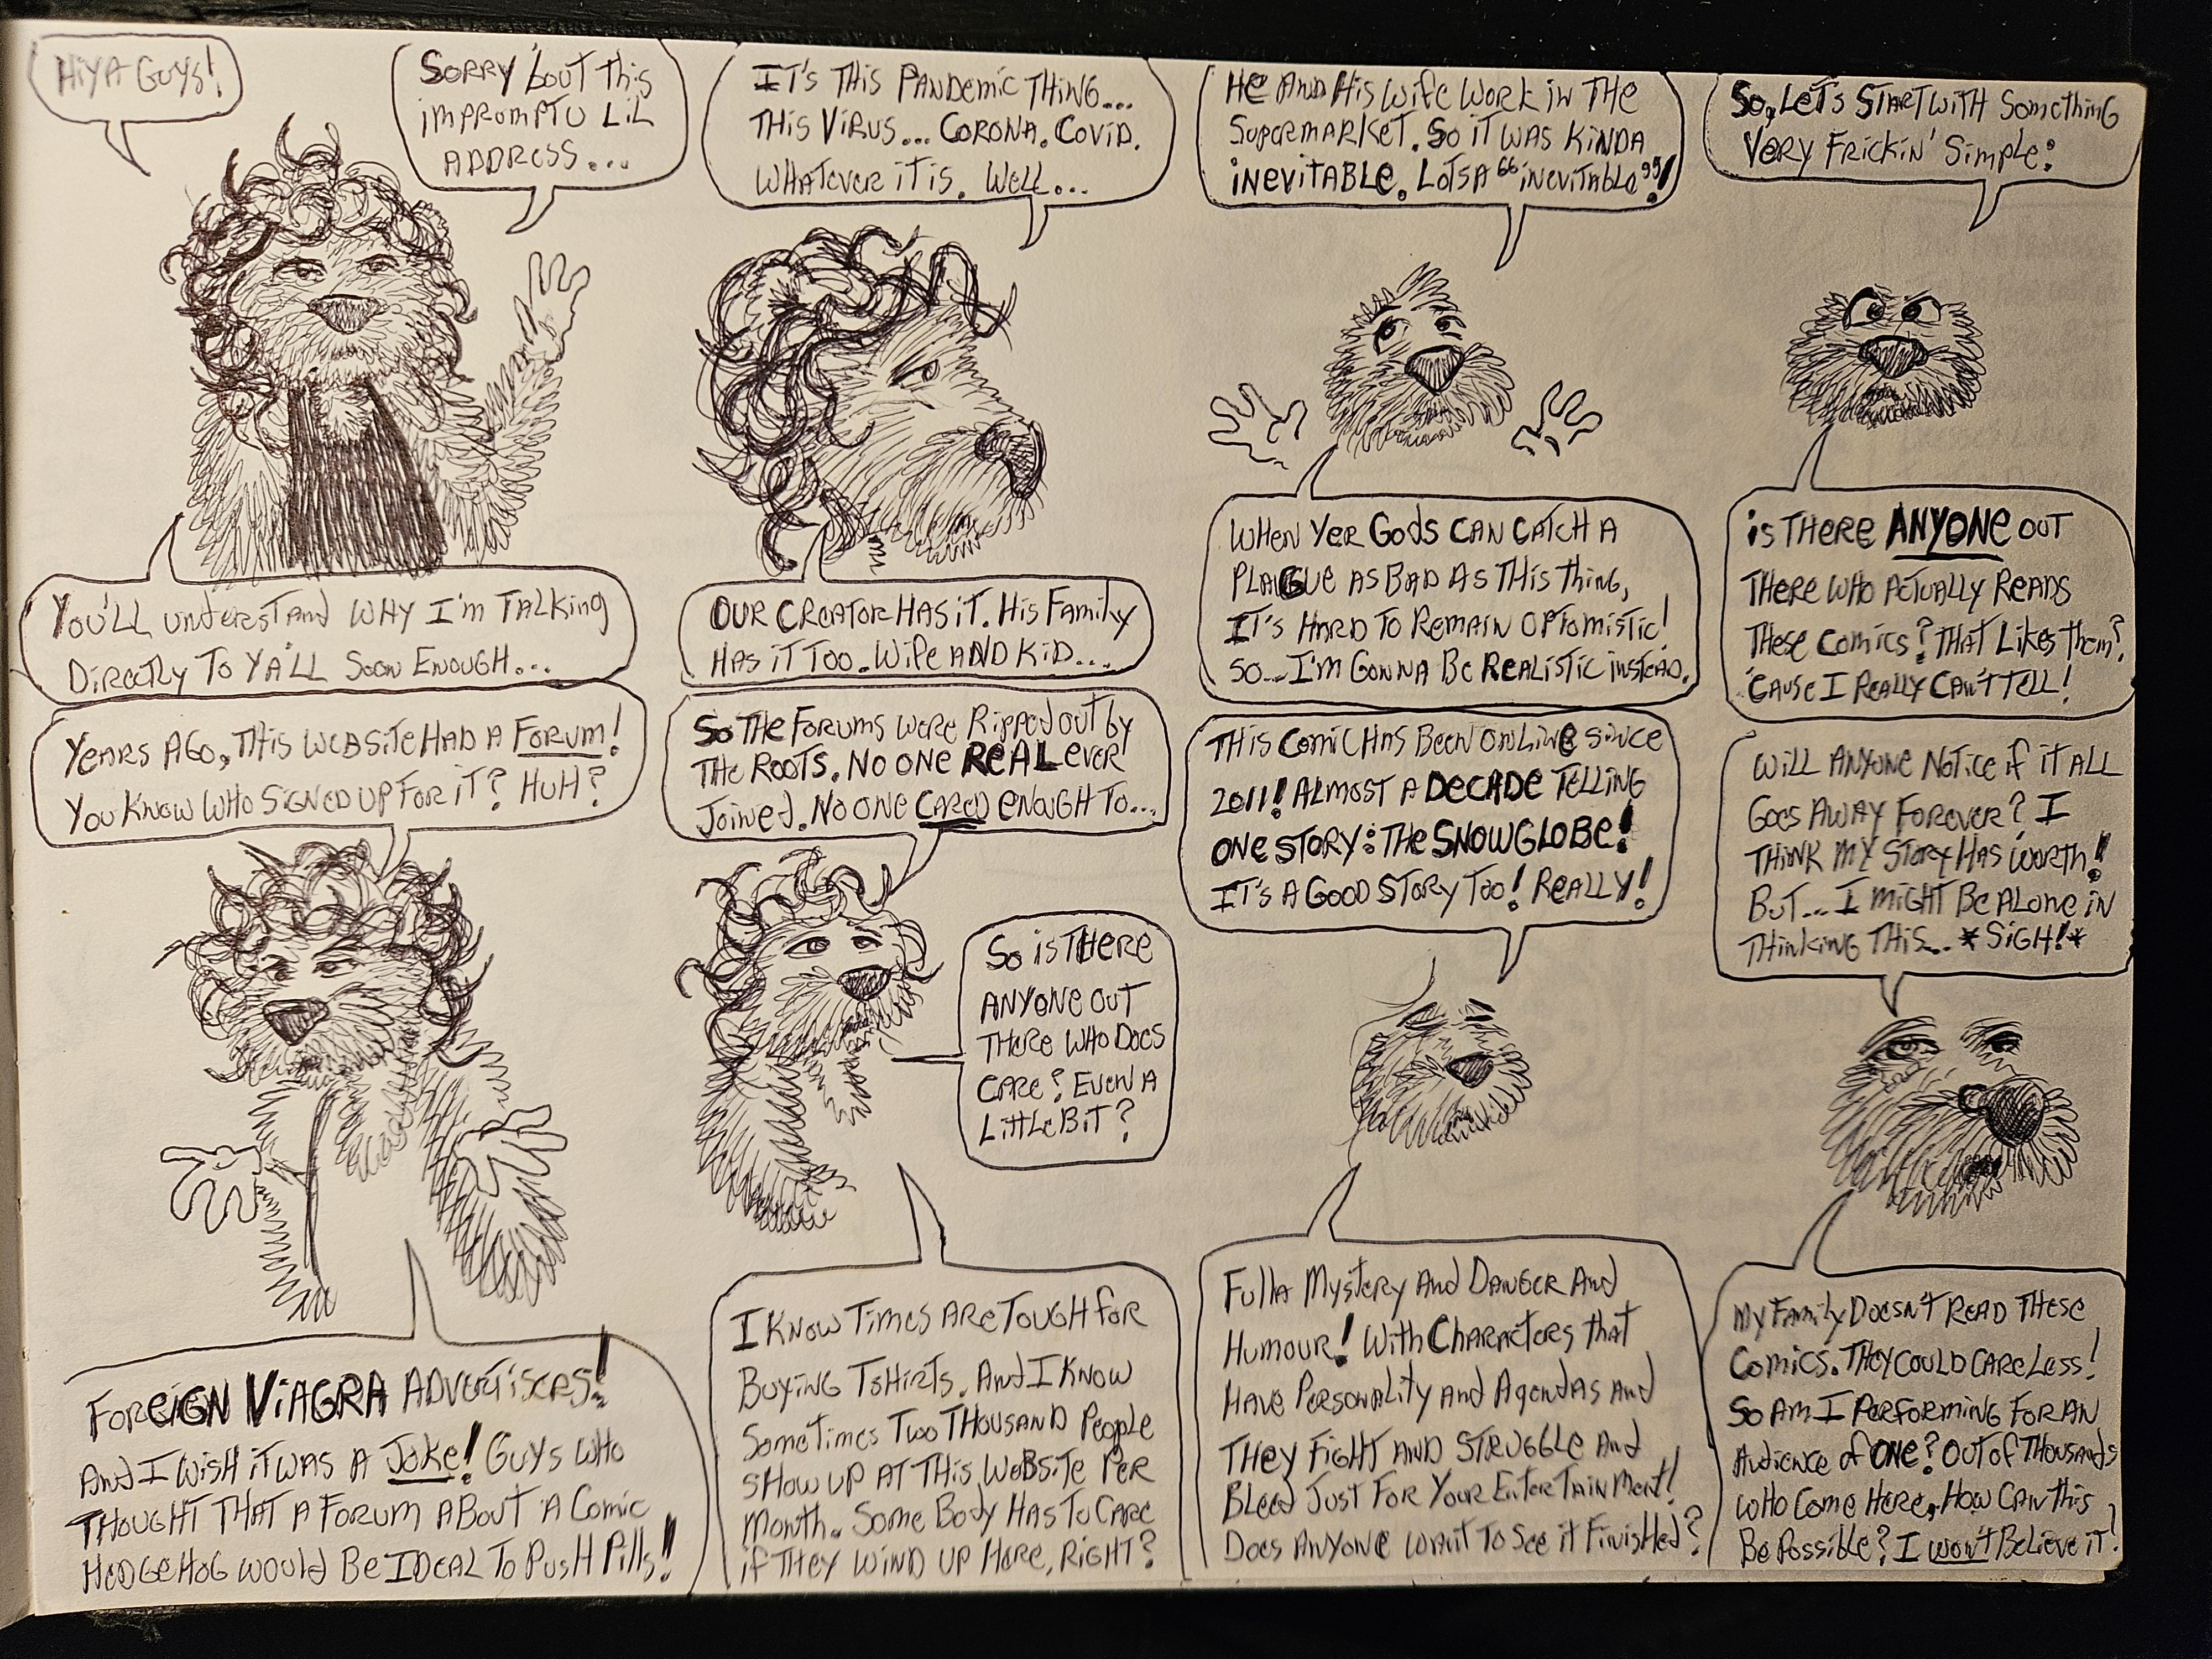 HiYA GUYS!
SORRY 'bout this
imPROMPTU LiL
ADDRESS...
YOU'LL understand WHY I'm TALKing
DiRECTly TO YA'LL SOON ENOUGH...
IT'S THiS PANDemic THiNG...
THiS ViRUS... CORONA. COViD.
WHATever iT iS. WeLL...
OUR CREATOR HAS iT. HiS FAMily
HAS iT TOO. WiFe AND KiD...
HE AND HiS WiFe WORK iN THE
SUPERMARKET. SO iT WAS KiNDA
iNEViTABLE. LOTSA “iNEViTABLE”!
WHEN YER GODS CAN CATCH A
PLAGUE AS BAD AS THiS THiNG,
IT'S HARD TO REMAiN OPTOMiSTiC!
SO... I'M GONNA BE REALiSTiC iNSTEAD.
SO, LET'S START WiTH SOMETHiNG
VERY FRiCKiN' SiMPLE:
iS THERE ANYONE OUT
THERE WHO ACTUALLY READS
THESE COMiCS? THAT LiKES THEM?
'CAUSE I REALLY CAN'T TELL!
YEARS AGO, THiS WEBSiTE HAD A FORUM!
YOU KNOW WHO SiGNED UP FOR iT? HUH?
FOREiGN ViAGRA ADVERTiSERS!
And I WiSH iT WAS A JOKE! GUYS WHO
THOUGHT THAT A FORUM ABOUT A COMiC
HEDGEHOG WOULD BE IDEAL TO PUSH PiLLS!
SO THE FORUMS WERE RiPPED OUT BY
THE ROOTS. NO ONE REAL EVER
JOiNED. NO ONE CARED ENOUGH TO...
SO iS THERE
ANYONE OUT
THERE WHO DOES
CARE? EVEN A
LiTTLE BiT?
I KNOW TiMES ARE TOUGH FOR
BUYiNG TSHiRTS. And I KNOW
SOMETiMES TWO THOUSAND PEOPLE
SHOW UP AT THiS WEBSiTE PER
MONTH. SOME BODY HAS TO CARE
iF THEY WiND UP HERE, RiGHT?
THiS COMiC HAS BEEN ONLiNE SiNCE
2011! ALMOST A DECADE TELLiNG
ONE STORY: THE SNOWGLOBE!
IT'S A GOOD STORY TOO! REALLY!
FULLA MYSTERY AND DANGER AND
HUMOUR! WiTH CHARACTERS THAT
HAVE PERSONALiTY AND AGENDAS AND
THEY FiGHT AND STRUGGLE AND
BLEED JUST FOR YOUR ENTERTAiNMENT!
DOES ANYONE WANT TO SEE iT FiNiSHED?
WiLL ANYONE NOTiCE iF iT ALL
GOES AWAY FOREVER? I
THiNK MY STORY HAS WORTH!
BUT... I MiGHT BE ALONE iN
THiNKiNG THiS... *SiGH!*
MY FAMiLY DOESN'T READ THESE
COMiCS. THEY COULD CARE LESS!
SO AM I PERFORMiNG FOR AN
AUDiENCE OF ONE? OUT OF THOUSANDS
WHO COME HERE, HOW CAN THiS
BE POSSiBLE? I WON'T BELiEVE iT!